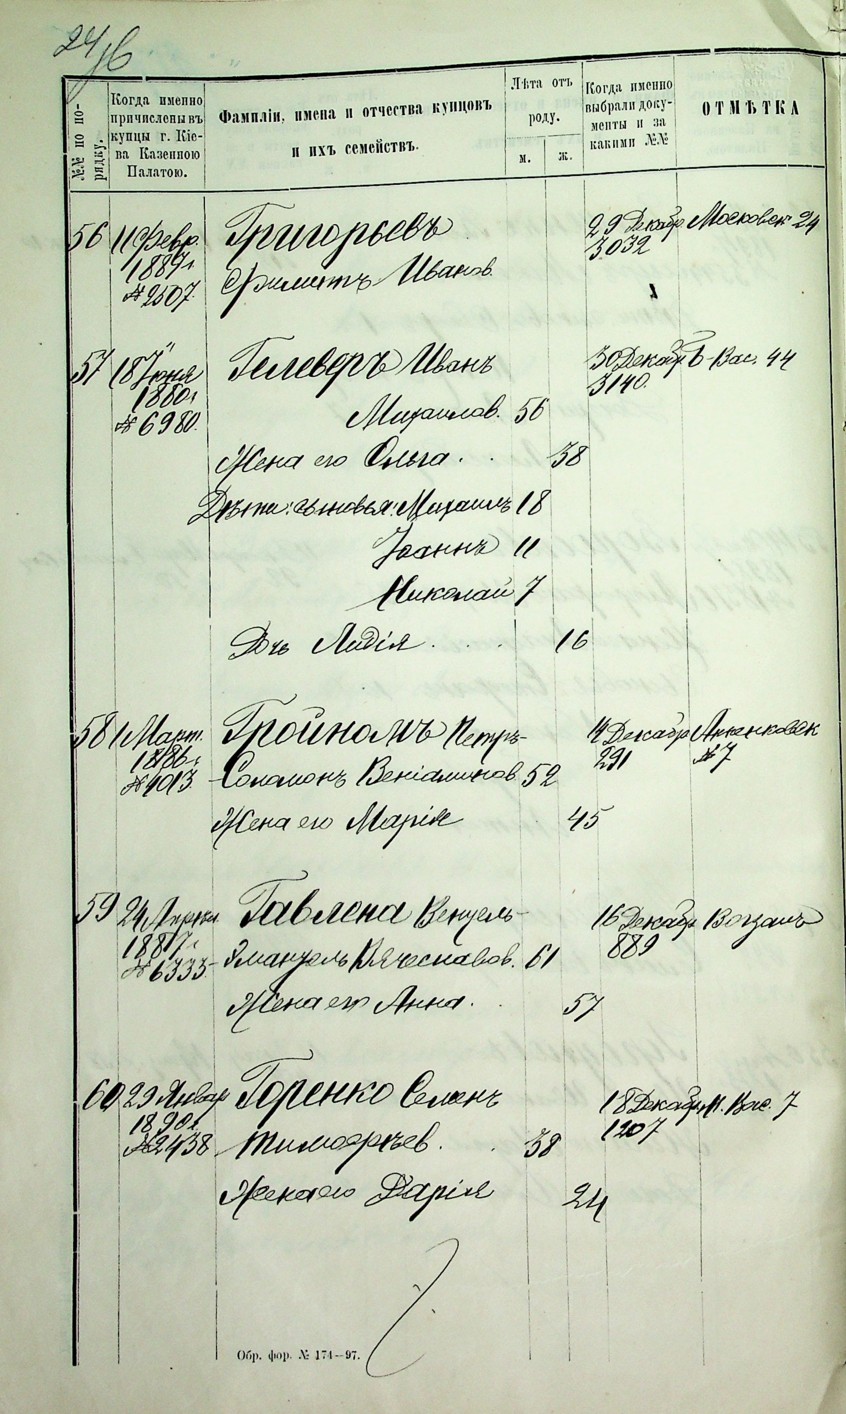 24
№№ по по-
рядку.
Когда именно
причислены въ
купцы г. Кіе-
ва Казенною
Палатою.
Фамиліи, имена и отчества купцовъ
и ихъ семействъ.
Лѣта отъ
роду.
м. ж.
Когда именно
выбрали доку-
менты и за
какими №№
ОТМѢТКА
56 11 Февр. Григорьевъ 29 Декабр. Московск. 24
1887 г. Филиппъ Иванов. 3032
№ 2507.
57 18 Іюня Гелеверъ Иванъ 30 Декабр. Б-Вас. 44
1880 г. Михаилов. 56 3140.
№ 6980.
Жена его Ольга . . 38
Дѣти: сыновья: Михаилъ 18
Іоаннъ 11
Николай 7
Дчь Лидія . . . 16
58 1 Март. Гройномъ Петръ- 14 Декабр. Анненковск
1886 г. Соломонъ Веніаминов. 52 291 № 7
№ 4013.
Жена его Марія 45
59 24 Апрѣл. Гавлена Венцель- 16 Декабр. Вокзалъ
1887 г. Эмануель Вячеславов. 61 889
№ 6333.
Жена его Анна . . 57
60 29 Январ Горенко Семенъ 18 Декабр. М. Вас. 7
1890 г. Тимофѣев. . . 38 1207
№ 2438
Жена его Дарія 24
Обр. фор. № 174—97.